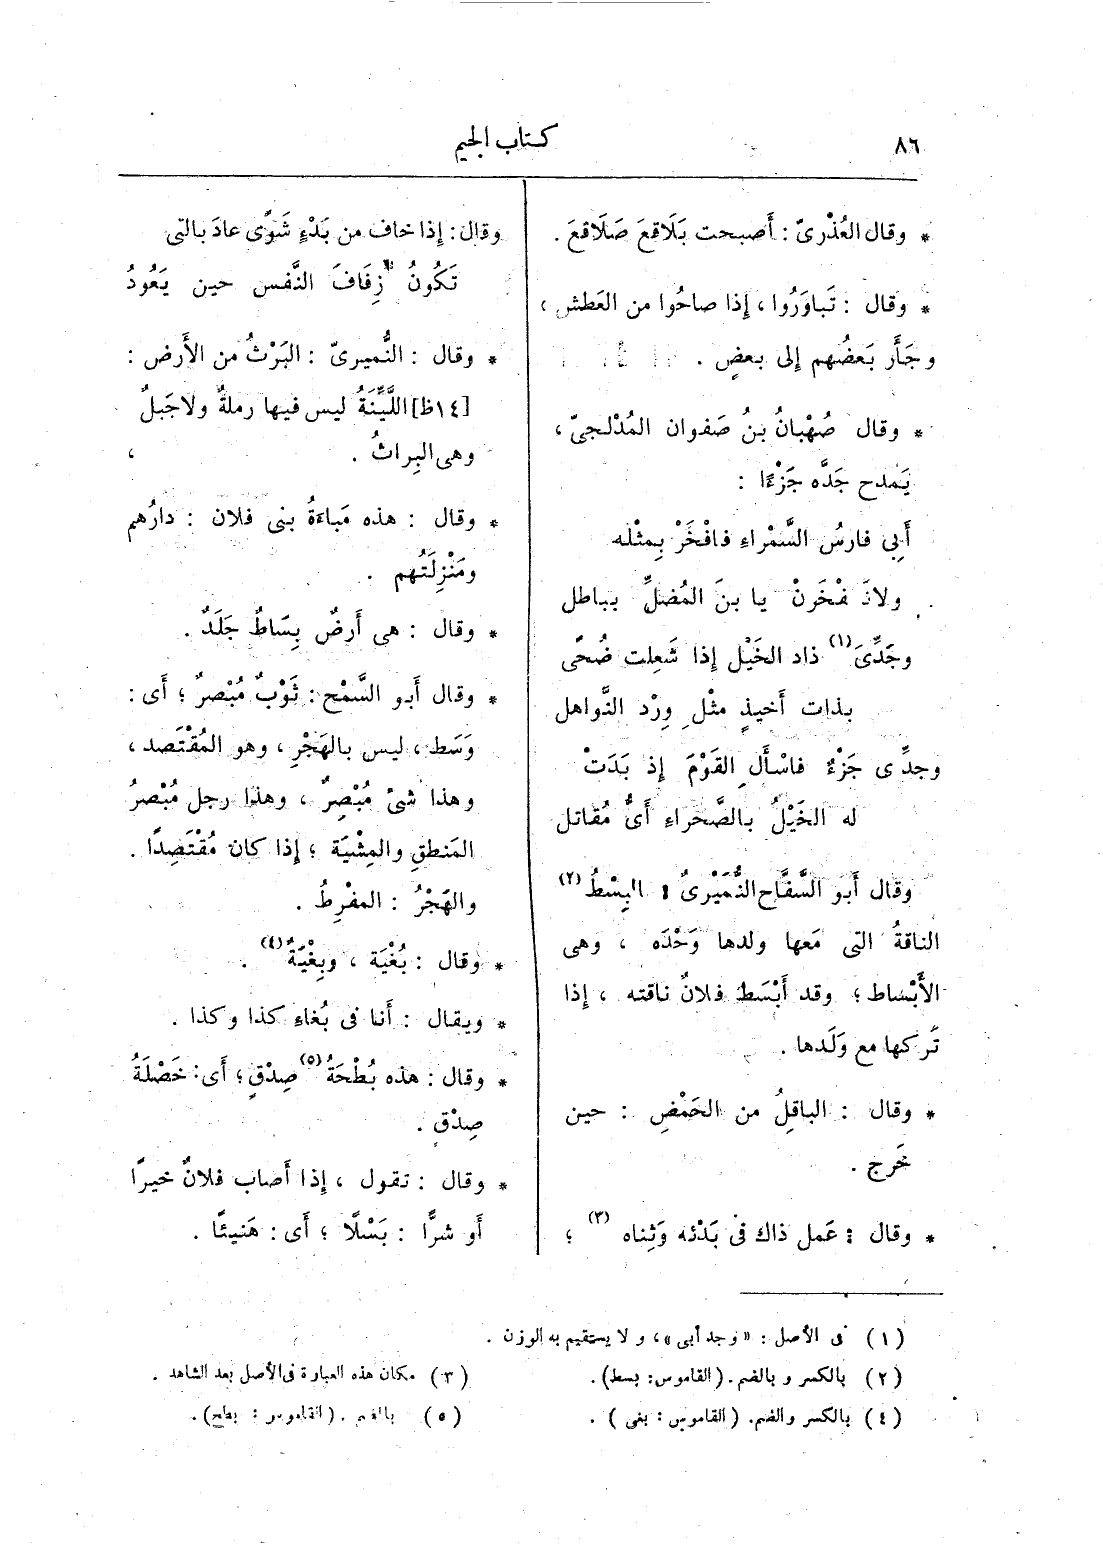 ٨٦
كتاب الجيم
* وقال العُذْرىّ : أَصبحت بَلَاقعَ صَلَاقعَ .
* وقال : تَباوَرُوا ، إذا صاحُوا من العَطش ،
وجَأَر بَعضُهم إلى بعضٍ .
* وقال صُهْبانُ بنُ صَفوان المُدْلجىّ ،
يَمدح جَدَّه جَزْءًا :
أَبِى فارسُ السَّمْراءِ فافْخَرْ بِمثْله
ولا تَفْخَرنْ يا بنَ المُضلِّ بباطل
وجَدِّىَ (١) ذاد الخَيْل إذا شَعِلت ضُحًى
بذات أَخيذٍ مثْلِ وِرْد النَّواهل
وجدِّى جَزْءٌ فاسْأَلِ القَوْمَ إذ بَدَتْ
له الخَيْلُ بالصَّحْراءِ أَىُّ مُقاتل
وقال أَبو السَّفَّاح النُّمَيْرىُّ : البِسْطُ (٢)
الناقةُ التى مَعها ولدها وَحْدَه ، وهى
الأَبْساط ؛ وقد أَبْسَط فلانٌ ناقته ، إذا
تَركها مع وَلَدها .
* وقال : الباقلُ من الحَمْضِ : حين
خَرج .
* وقال : عَمل ذاك فى بَدْئه وَثِناه (٣) ؛
وقال : إذا خاف من بَدْءٍ شَوًى عادَ بالتى
تَكُونُ زِفَافَ النَّفس حين يَعُودُ
* وقال : النُّميرىّ : البَرْثُ من الأَرض :
[١٤ظ] اللَّيِّنَةُ ليس فيها رملةٌ ولا جَبلٌ ،
وهى البِراثُ .
* وقال : هذه مَباءَةُ بنى فلان : دارُهم
ومَنْزِلَتُهم .
* وقال : هى أَرضٌ بِسَاطٌ جَلَدٌ .
* وقال أَبو السَّمْح : ثَوْبٌ مُبْصرٌ ؛ أَى :
وَسَط ، ليس بالهَجْرِ ، وهو المُقْتَصد ،
وهذا شىءٌ مُبْصِرٌ ، وهذا رجل مُبْصرُ
المَنطقِ والمِشْيَة ؛ إذا كان مُقْتَصِدًا .
والهَجْرُ : المفْرِطُ .
* وقال : بُغْيَة ، وبِغْيَةٌ (٤) .
* ويقال : أَنا فى بُغاءِ كذا وكذا .
* وقال : هذه بُطْحَةُ (٥) صِدْقٍ ؛ أَى : خَصْلَةُ
صِدْقٍ .
* وقال : تقول ، إذا أَصاب فلانٌ خيرًا
أَو شرًّا : بَسْلًا ؛ أَى : هَنيئًا .
(١) فى الأصل : «وجد أبى» ، ولا يستقيم به الوزن .
(٢) بالكسر وبالضم . (القاموس : بسط) .
(٣) مكان هذه العبارة فى الأصل بعد الشاهد .
(٤) بالكسر والضم . (القاموس : بغى) .
(٥) بالضم . (القاموس : بطح) .